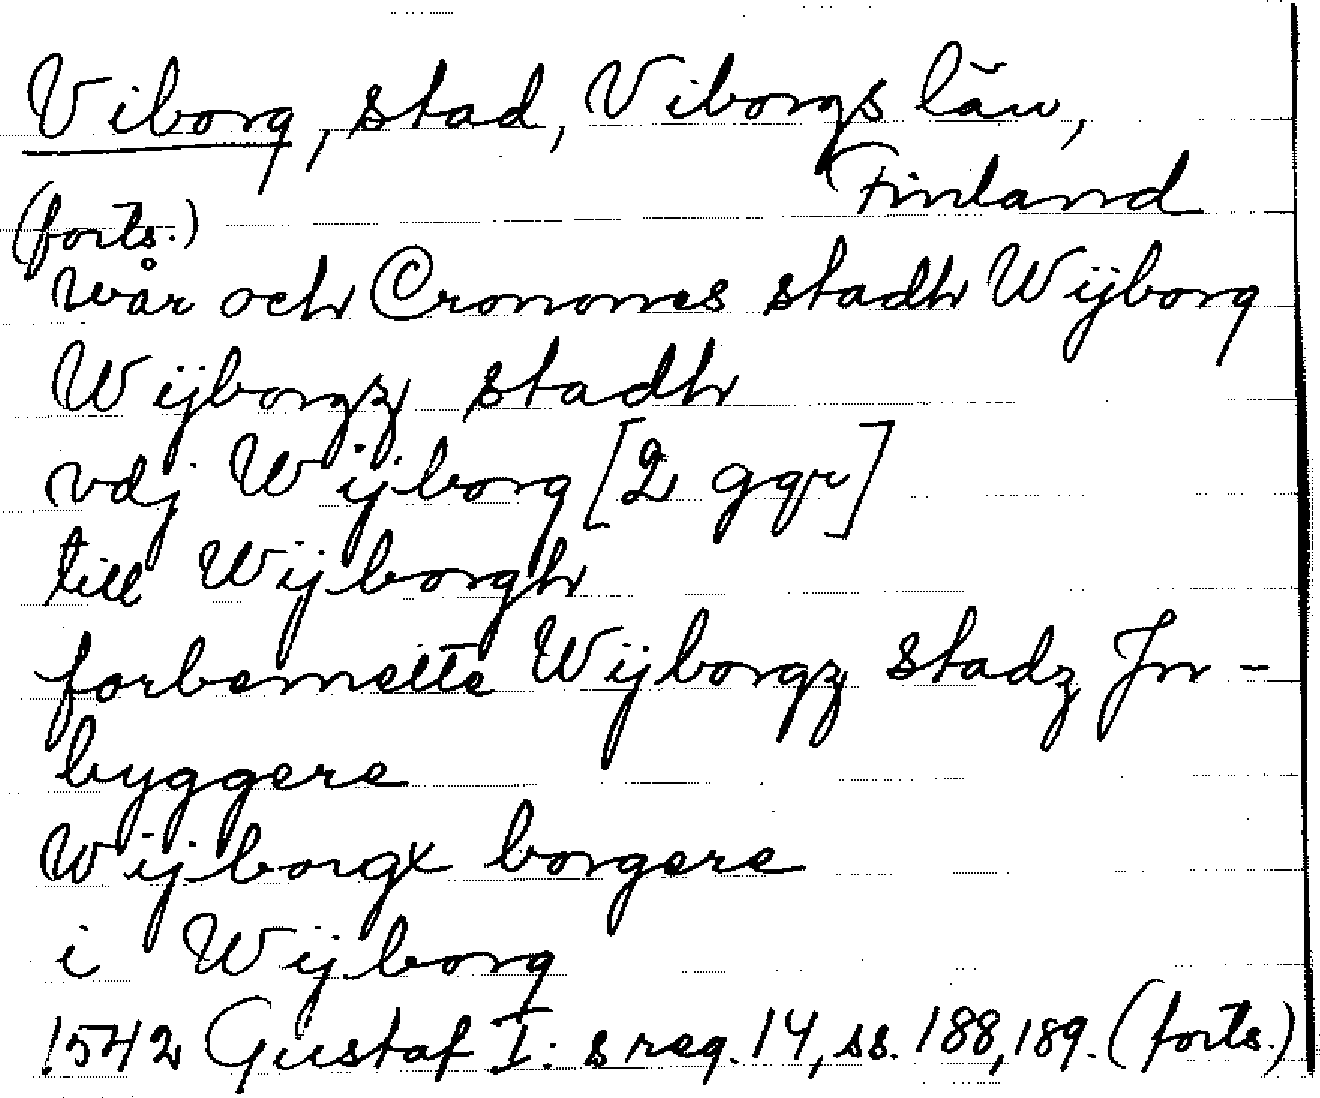 Viborg, stad, Viborgs län,
Finland
(forts.)
wår och Cronones stadh Wijborg
Wijborgz stadh
vdj Wijborg [2 ggr]
till Wijborgh
forbemelte Wijborgz stadz In-
byggere
Wijborgx borgere
i Wijborg
1542 Gustaf I:s reg. 14, ss. 188, 189. (forts.)